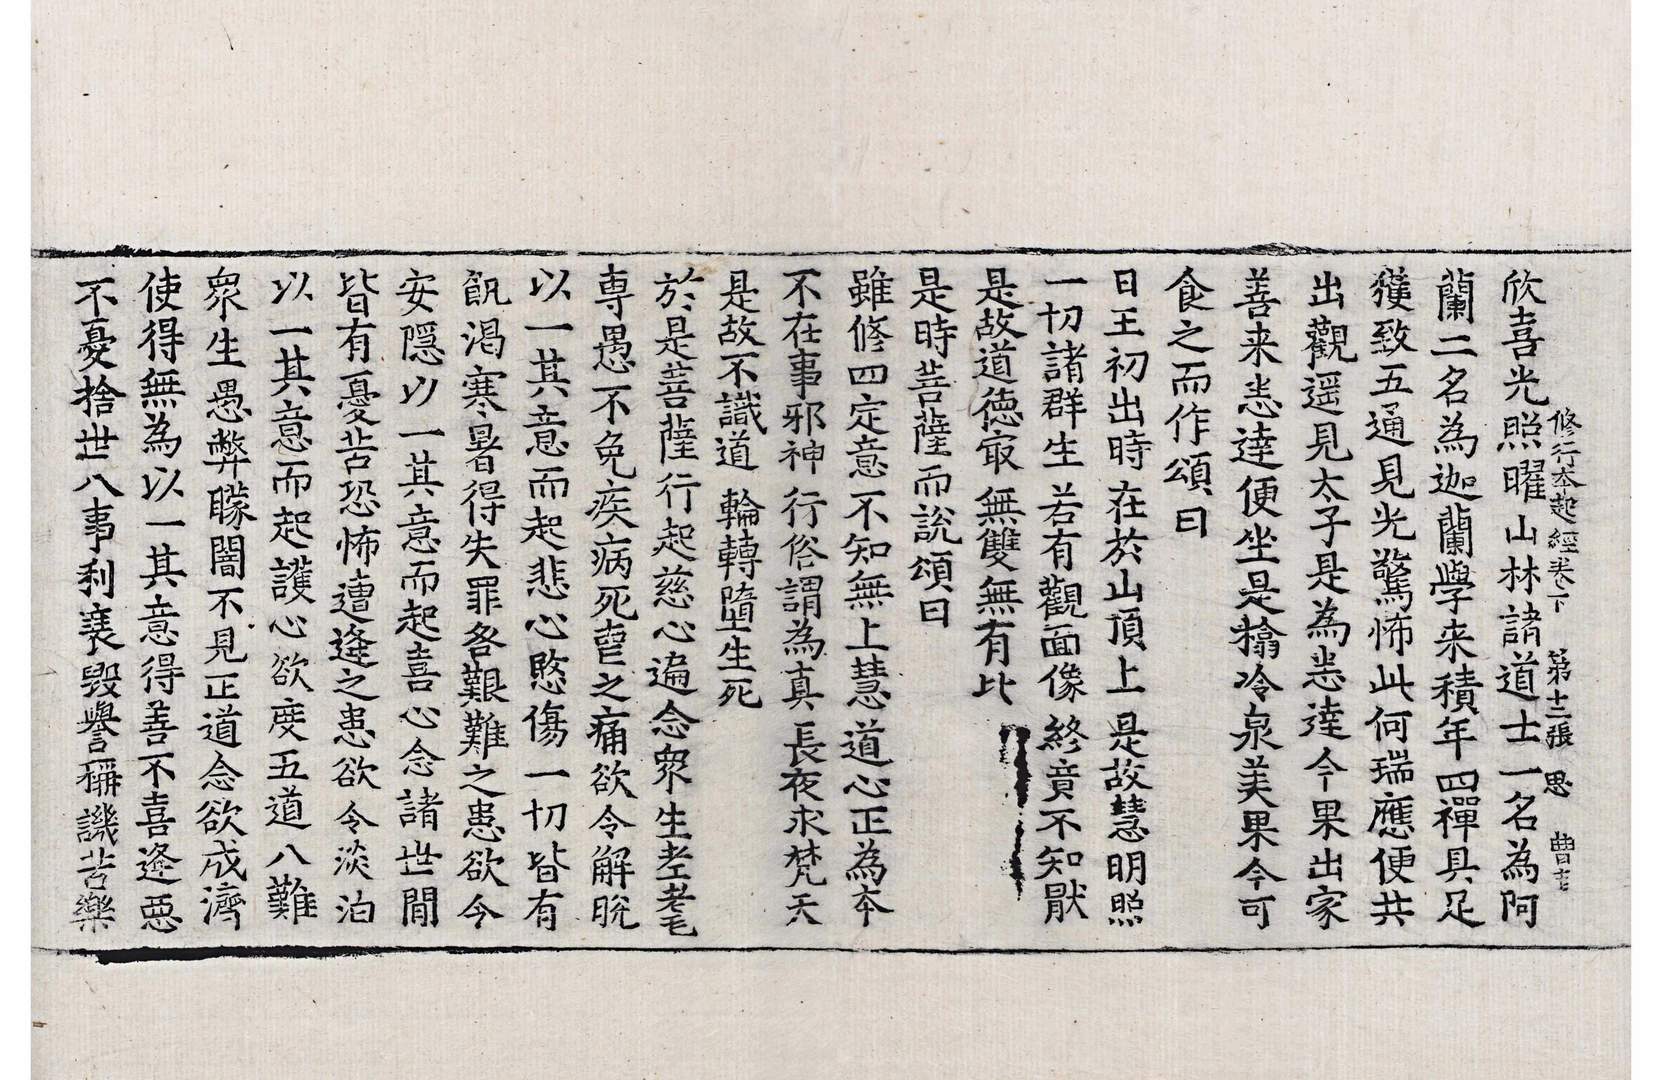 欣喜光照曜山林諸道士一名為阿
修行本起經卷下　第十二張　思　曹主
蘭二名為迦蘭學来積年四禪具足
獲致五通見光驚怖此何瑞應便共
出觀遥見太子是為悉達今果出家
善来悉達便坐是榻冷泉美果今可
食之而作頌曰
日王初出時　在於山頂上　是故慧明照
一切諸群生　若有觀面像　終竟不知猒
是故道徳㝡　無雙無有比
是時菩薩而說頌曰
雖修四定意　不知無上慧　道心正為本
不在事邪神　行俗謂為真　長夜求梵天
是故不識道　輪轉墮生死
於是菩薩行起慈心遍念衆生老耄
専愚不免疾病死喪之痛欲令解脫
以一其意而起悲心愍傷一切皆有
飢渴寒暑得失罪咎艱難之患欲令
安隱以一其意而起喜心念諸世間
皆有憂苦恐怖遭逢之患欲令淡泊
以一其意而起護心欲度五道八難
衆生愚弊矇闇不見正道念欲成濟
使得無為以一其意得善不喜逢惡
不憂捨世八事利衰毀譽稱譏苦樂